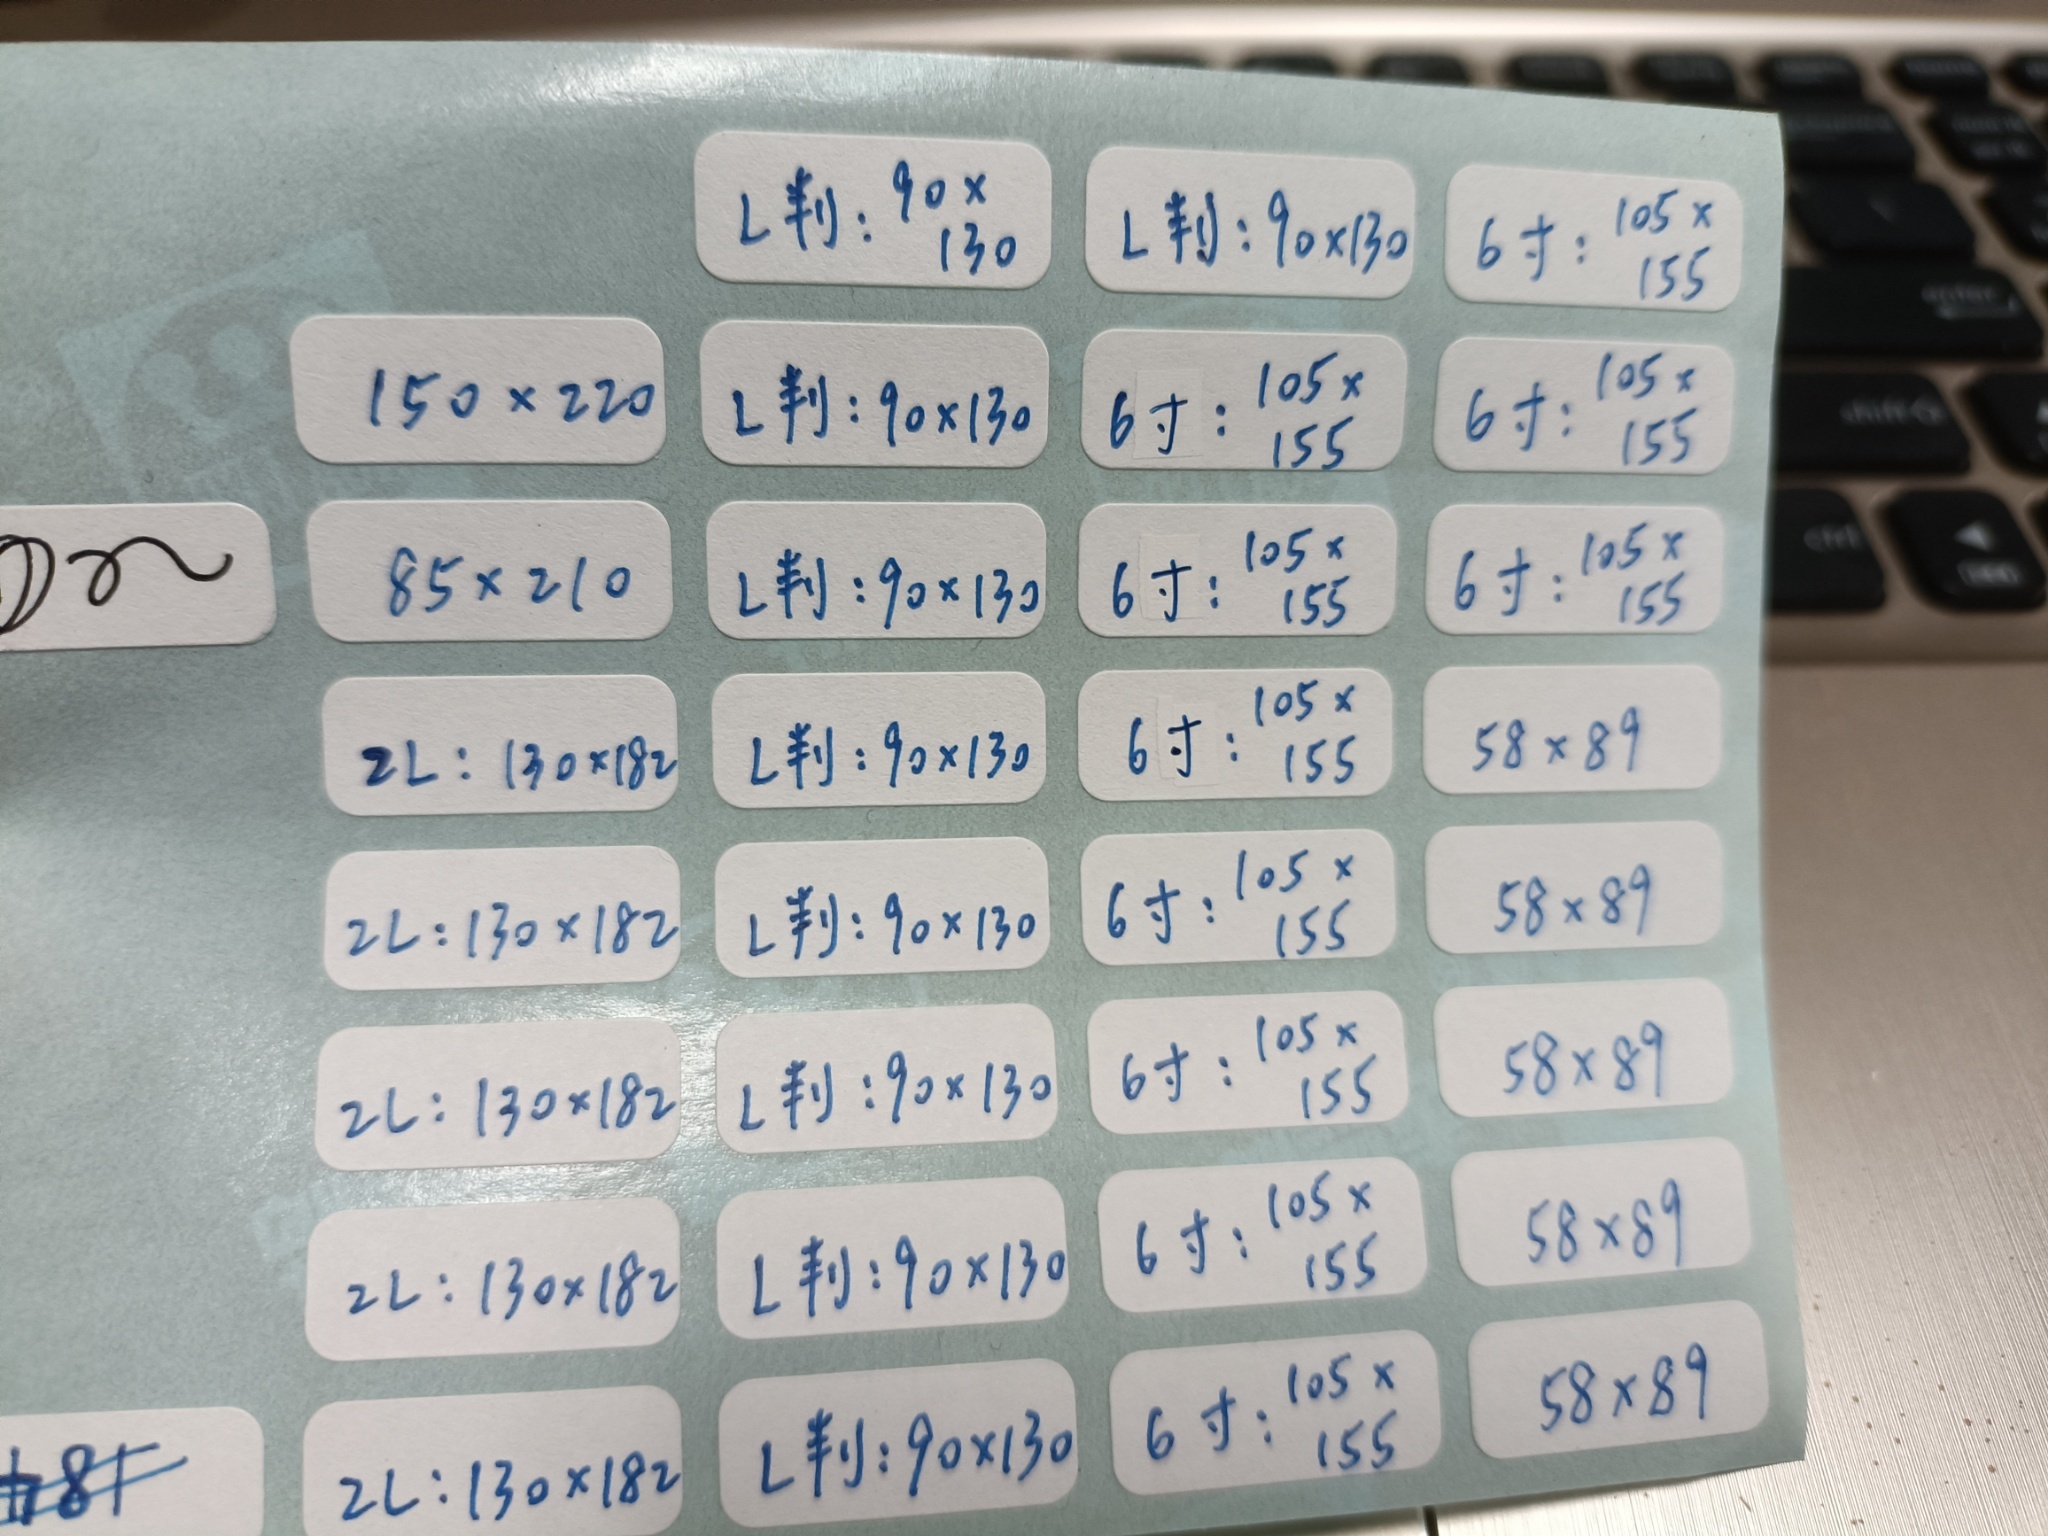 L判: 90×
130
L判: 90×130
6寸: 105×
155
150×220
L判: 90×130
6寸: 105×
155
6寸: 105×
155
85×210
L判: 90×130
6寸: 105×
155
6寸: 105×
155
2L: 130×182
L判: 90×130
6寸: 105×
155
58×89
2L: 130×182
L判: 90×130
6寸: 105×
155
58×89
2L: 130×182
L判: 90×130
6寸: 105×
155
58×89
2L: 130×182
L判: 90×130
6寸: 105×
155
58×89
2L: 130×182
L判: 90×130
6寸: 105×
155
58×89